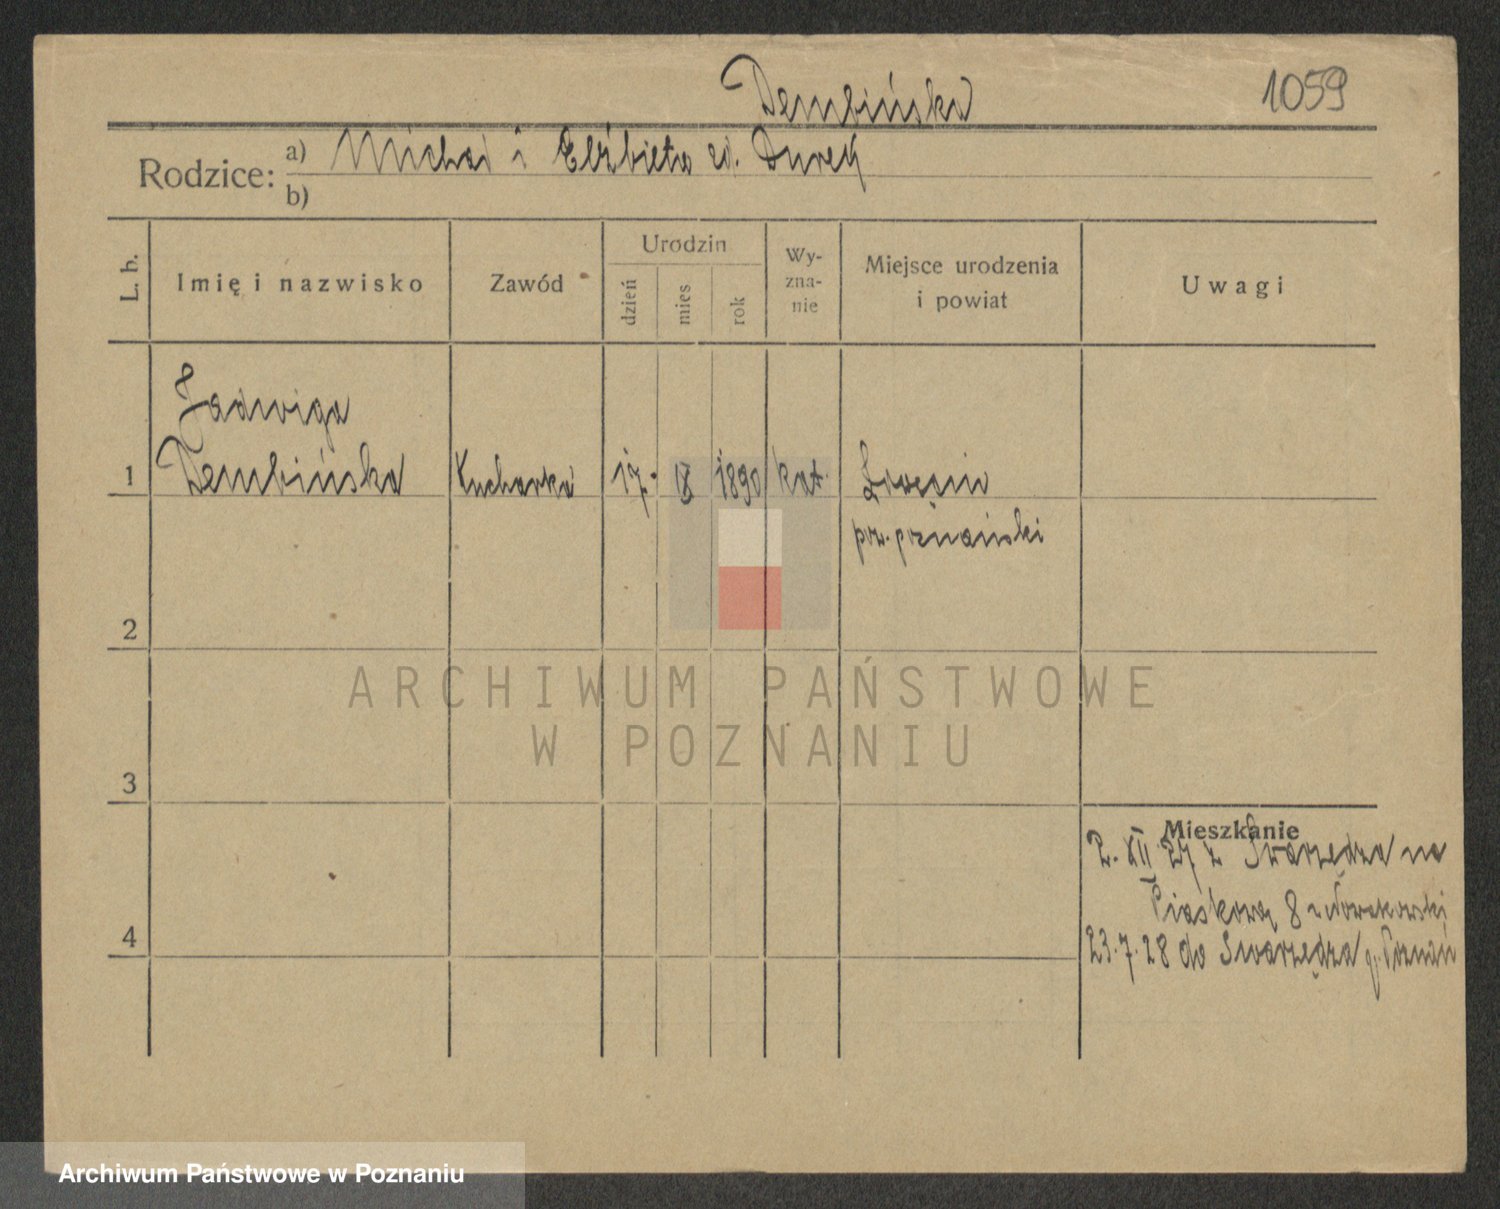 Dembińska
1059
Rodzice: a) Michał i Elżbieta zd. Durek
b)
L. b.
Imię i nazwisko
Zawód
Urodzin
dzień
mies
rok
Wy-
zna-
nie
Miejsce urodzenia
i powiat
Uwagi
Jadwiga
1 Dembińska Kucharka 17. 8 1890 kat.
pow. poznański
2
ARCHIWUM PAŃSTWOWE
W POZNANIU
3
Mieszkanie
2. XII 27 z Swarzędza na
Piaskową 8 Nowakowski
4
23.7.28 do Swarzędza p. Poznań
Archiwum Państwowe w Poznaniu